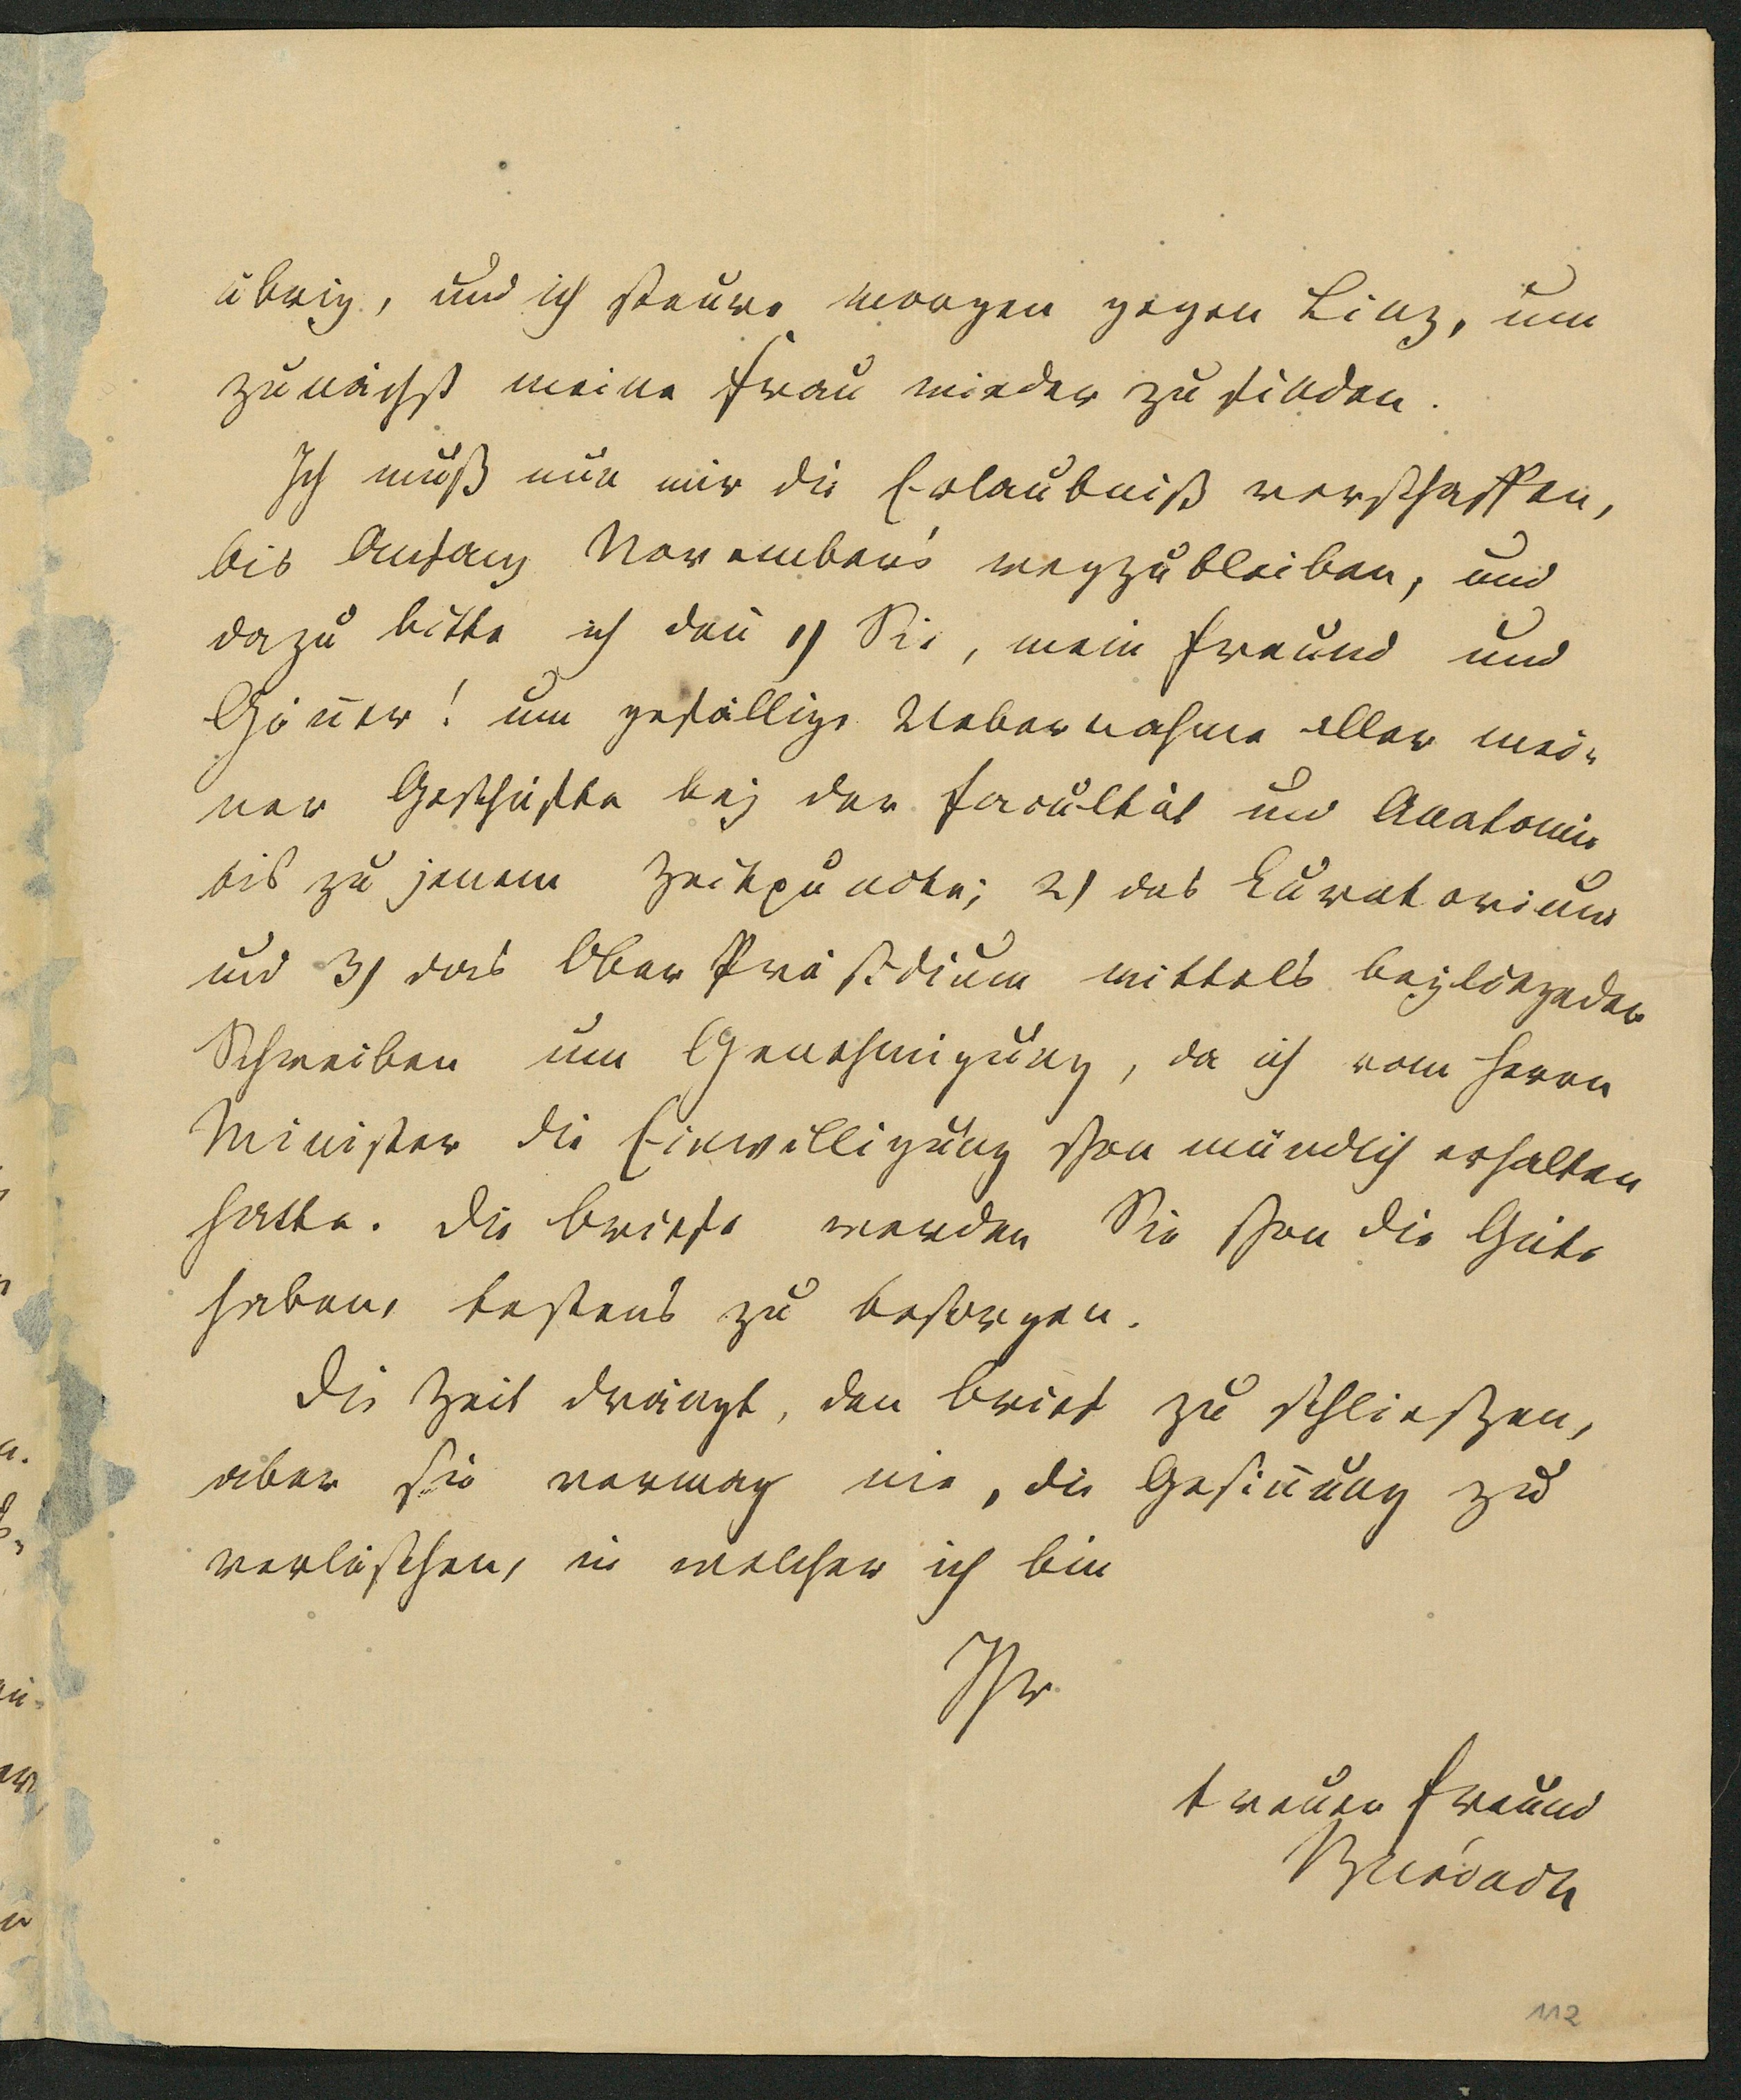 übrig, und ich steure morgen gegen Linz, um
zunächst meine Frau wieder zu finden.
Ich muß nun mir die Erlaubniß verschaffen,
bis Anfang November's wegzubleiben, und
dazu bitte ich den̄ 1) Sie, mein Freund und
Gön̄er! um gefällige Uebernahme aller mei-
ner Geschäfte bey der Facultät und Anatomie
bis zu jenem Zeitpuncte; 2) das Curatorium
und 3) das Ober Präsidium mittels beyliegender
Schreiben um Genehmigung, da ich vom Herrn
Minister die Einwilligung schon mündlich erhalten
hatte. Die Briefe werden Sie schon die Güte
haben, bestens zu besorgen.
Die Zeit drängt, den Brief zu schließen,
aber sie vermag nie, die Gesin̄ung zu
verlöschen, in welcher ich bin
Ihr
treuer Freund
Burdach
112